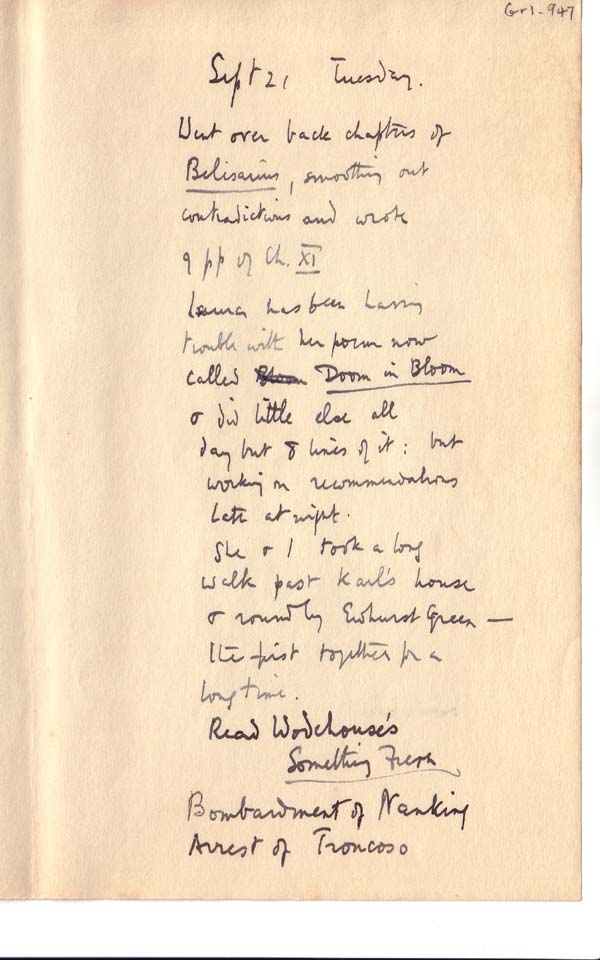 Gr1-947
Sept 21 Tuesday.
Went over back chapters of
Belisarius, smoothing out
contradictions and wrote
9 pp of Ch. XI
Laura has been having
trouble with her poem now
called Bloom Doom in Bloom
& did little else all
day but 8 lines of it: but
working on recommendations
late at night.
She & I took a long
walk past Karl's house
& round by Ewhurst Green —
the first together for a
long time.
Read Wodehouse's
Something Fresh
Bombardment of Nanking
Arrest of Troncoso